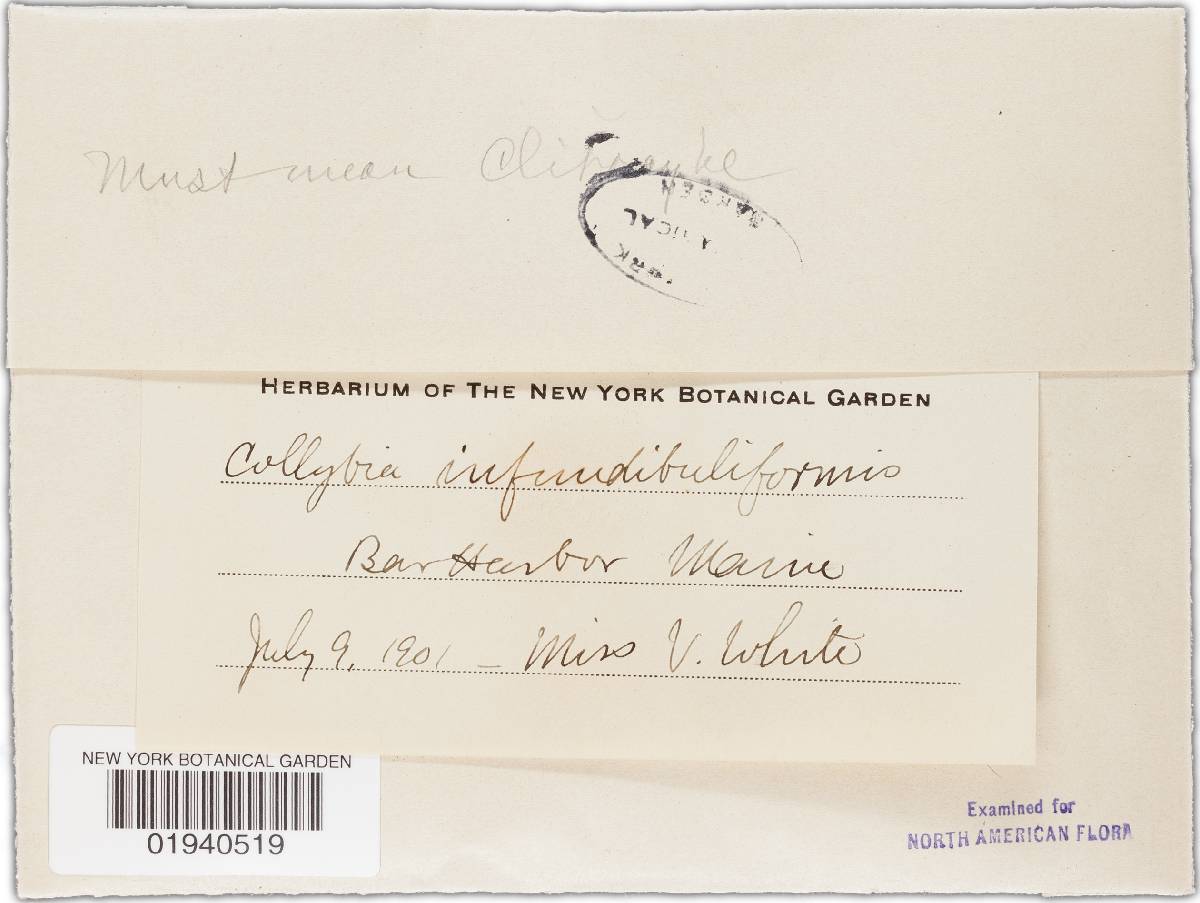 Must mean Clitocybe
YORK
BOTANICAL
GARDEN
HERBARIUM OF THE NEW YORK BOTANICAL GARDEN
Collybia infundibuliformis
Bar Harbor Maine
July 9, 1901 – Miss V. White
NEW YORK BOTANICAL GARDEN
01940519
Examined for
NORTH AMERICAN FLORA